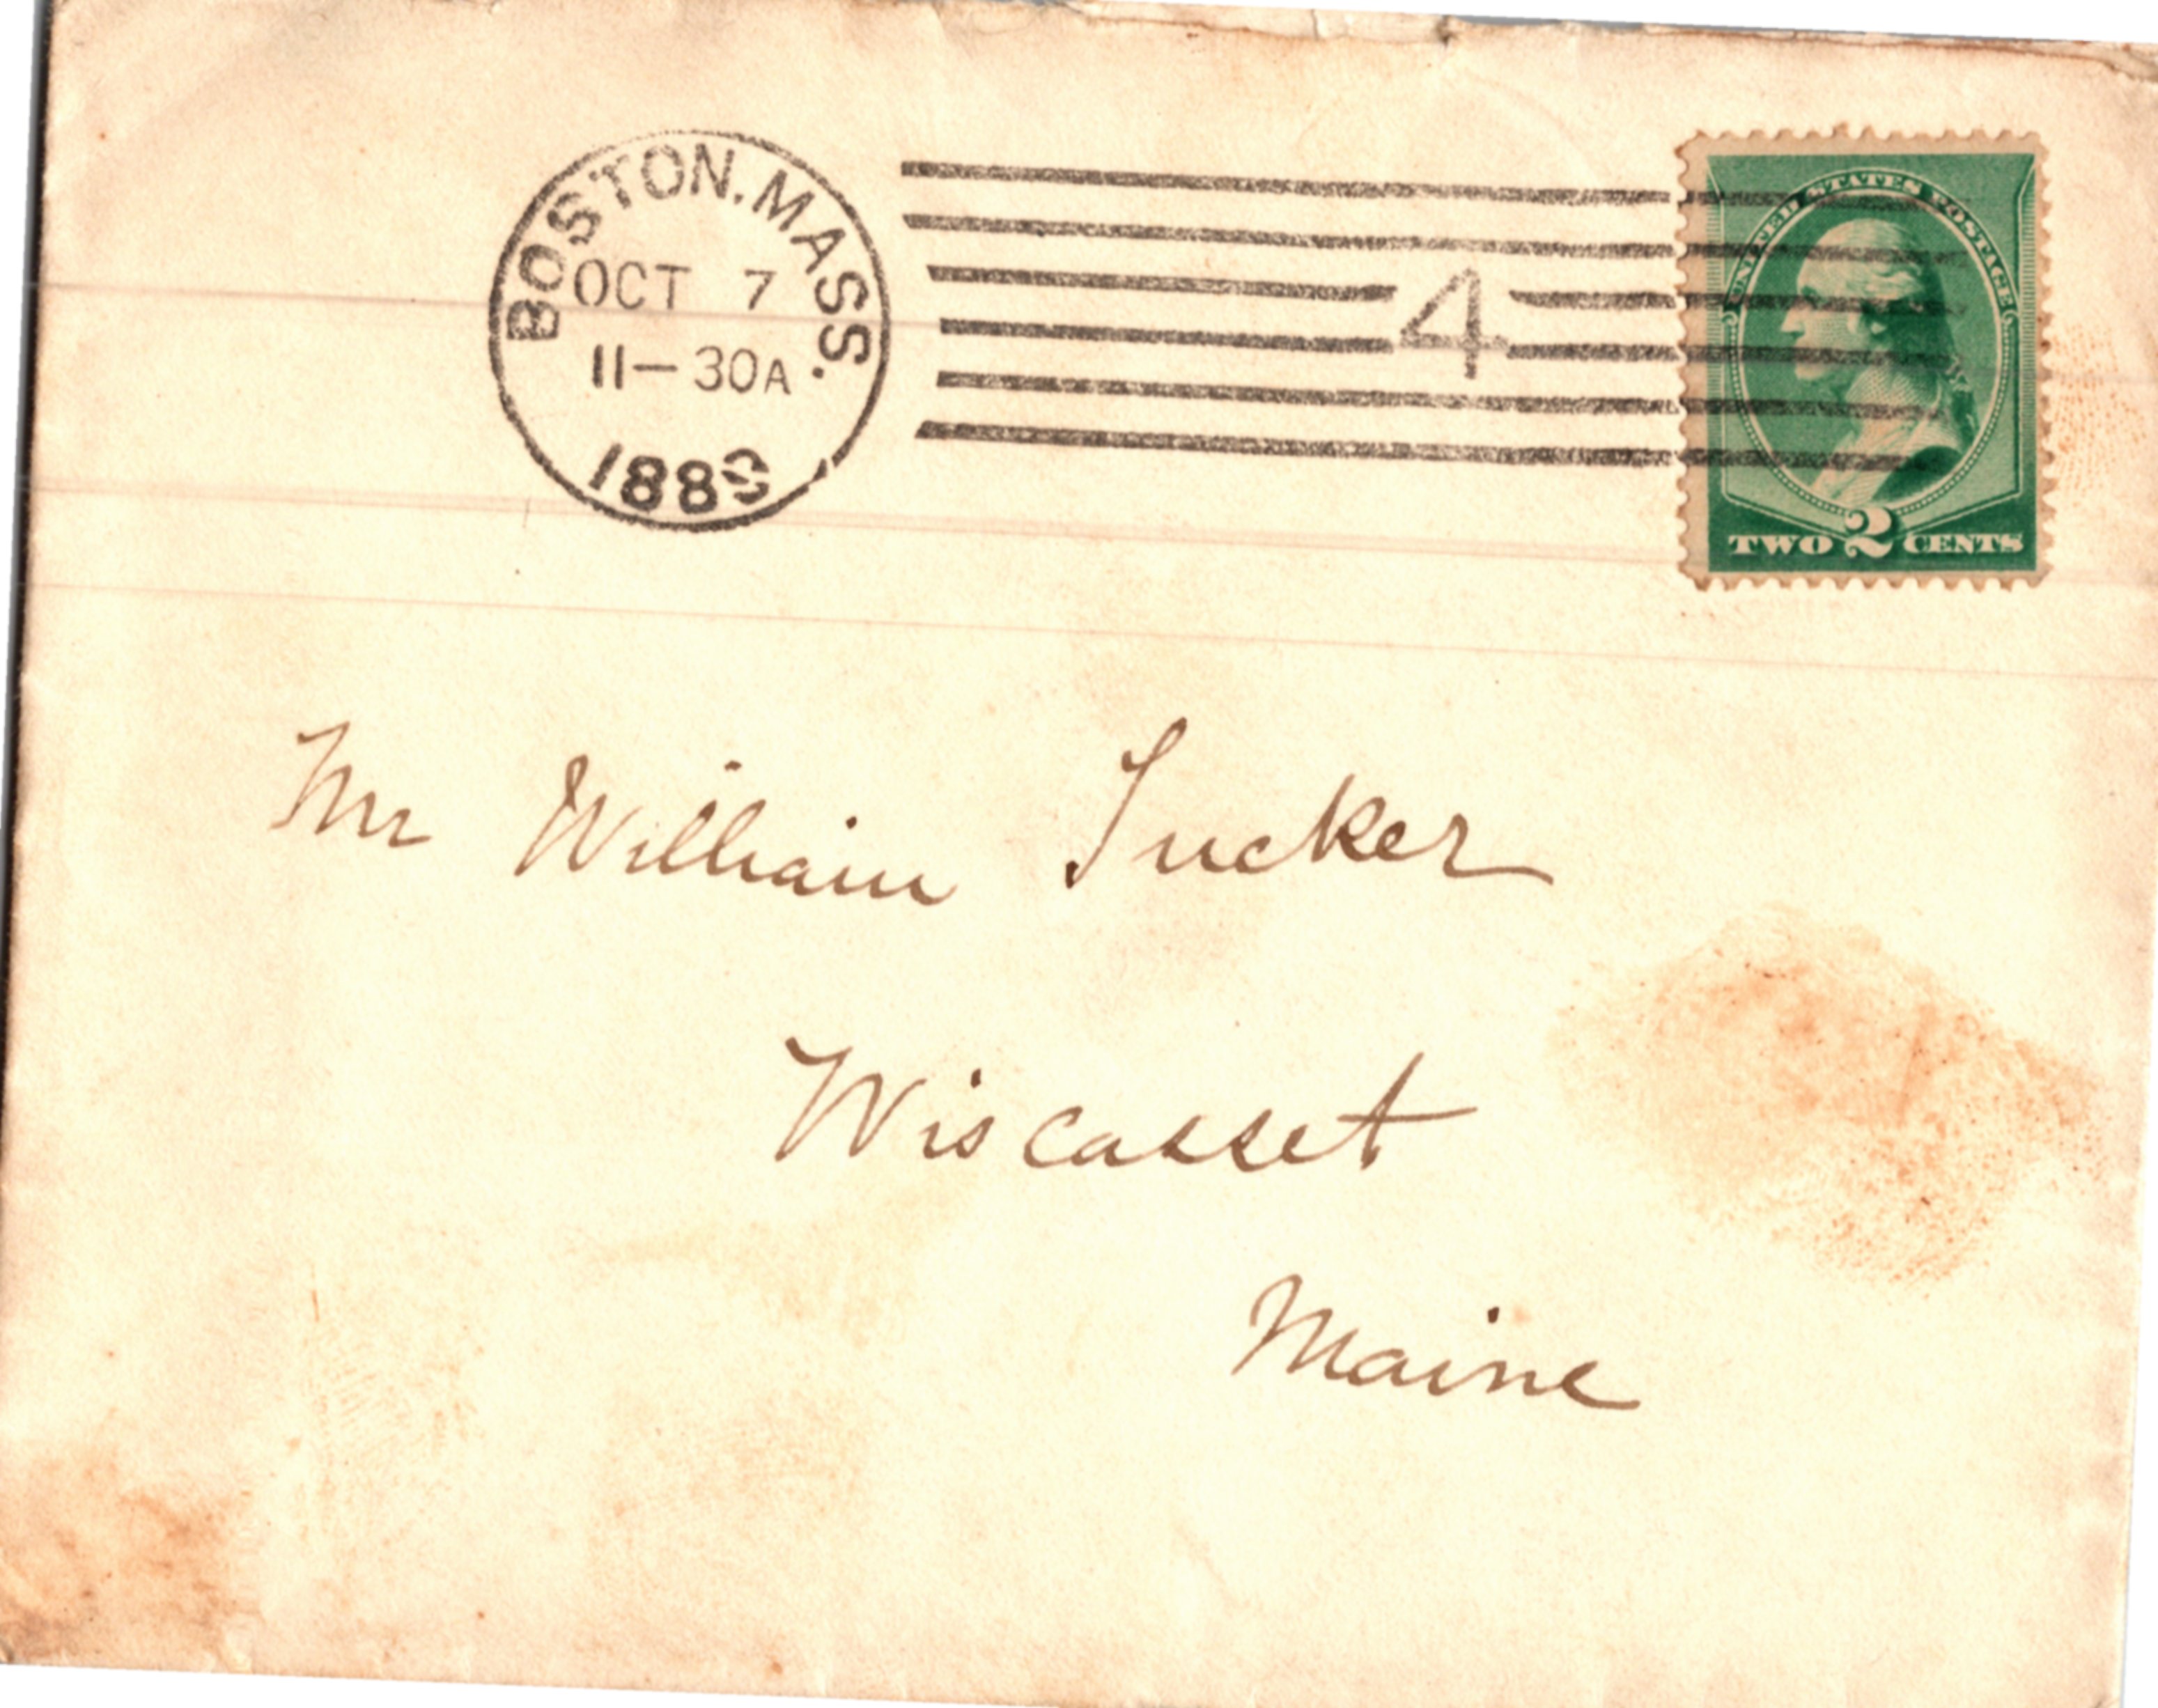 BOSTON. MASS.
OCT 7
11-30A
1889
4
UNITED STATES POSTAGE
TWO 2 CENTS
Mr William Tucker
Wiscasset
Maine